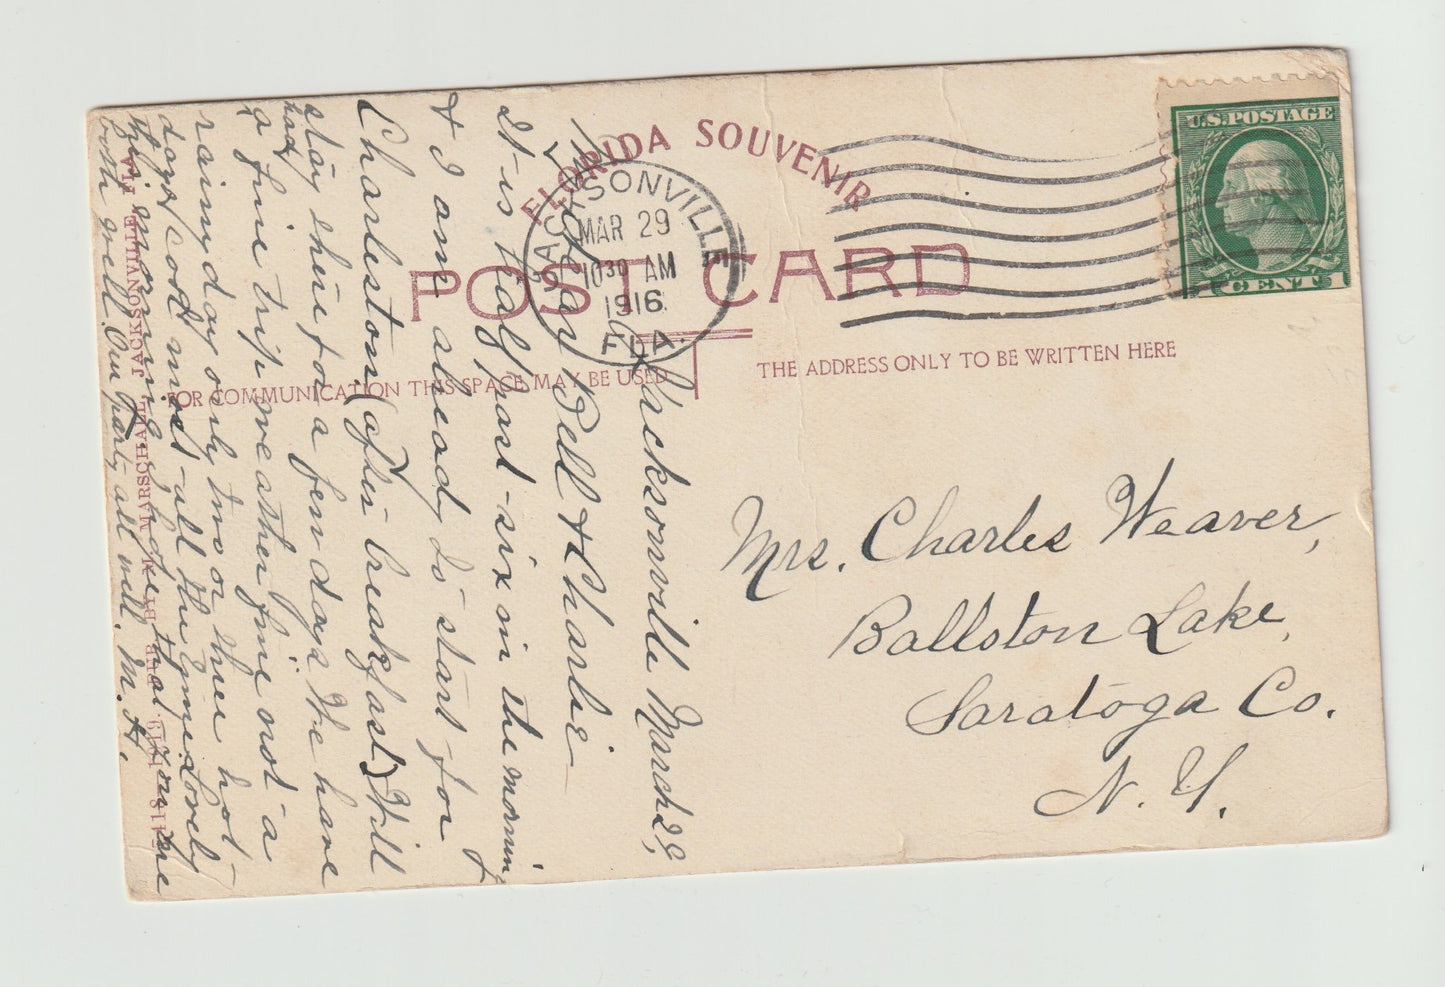 FLORIDA SOUVENIR
POST CARD
FOR COMMUNICATION THIS SPACE MAY BE USED
THE ADDRESS ONLY TO BE WRITTEN HERE
U.S. POSTAGE
1 CENT 1
JACKSONVILLE
MAR 29
10 30 AM
1916
FLA.
Mrs. Charles Weaver,
Ballston Lake,
Saratoga Co.
N. Y.
Jacksonville March 29,
Dear Bell & Charlie
It is half past six in the morning
& I am already to start for
Charleston (after breakfast) Will
stay there for a few days. We have
had
a fine trip weather fine not a
rainy day only two or three hot
days cool most all the time lovely
this morning
both well. Our party all well. M. H.
PUB. BY H. & W. B. DREW JACKSONVILLE, FLA.